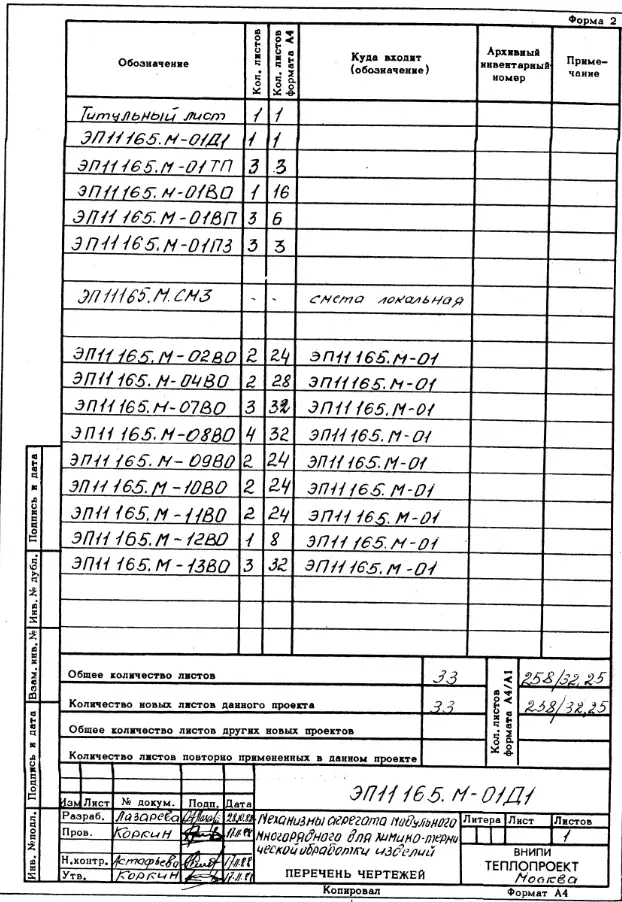 Форма 2
Обозначение Кол. листов Кол. листов формата А4 Куда входит (обозначение) Архивный инвентарный номер Примечание
Титульный лист 1 1
ЭП11165.М-01Д1 1 1
ЭП11165.М-01ТП 3 3
ЭП11165.М-01ВО 1 16
ЭП11165.М-01ВП 3 6
ЭП11165.М-01ПЗ 3 3
ЭП11165.М.СМЗ - - смета локальная
ЭП11165.М-02ВО 2 24 ЭП11165.М-01
ЭП11165.М-04ВО 2 28 ЭП11165.М-01
ЭП11165.М-07ВО 3 32 ЭП11165.М-01
ЭП11165.М-08ВО 4 32 ЭП11165.М-01
ЭП11165.М-09ВО 2 24 ЭП11165.М-01
ЭП11165.М-10ВО 2 24 ЭП11165.М-01
ЭП11165.М-11ВО 2 24 ЭП11165.М-01
ЭП11165.М-12ВО 1 8 ЭП11165.М-01
ЭП11165.М-13ВО 3 32 ЭП11165.М-01
Общее количество листов 33 Кол. листов формата А4/А1 258/32,25
Количество новых листов данного проекта 33 258/32,25
Общее количество листов других новых проектов
Количество листов повторно примененных в данном проекте
Инв. №подл. Подпись и дата Взам. инв. № Инв. № дубл. Подпись и дата
ЭП11165.М-01Д1
Изм Лист № докум. Подп. Дата
Разраб. Лазарева
Пров. Коркин 17.11.88
Н.контр. Астафьева 17.11.88
Утв. Коркин 17.11.88
Механизмы агрегата модульного
многорядного для химико-терми
ческой обработки изделий
ПЕРЕЧЕНЬ ЧЕРТЕЖЕЙ
Литера Лист Листов
1
ВНИПИ
ТЕПЛОПРОЕКТ
Москва
Копировал Формат А4